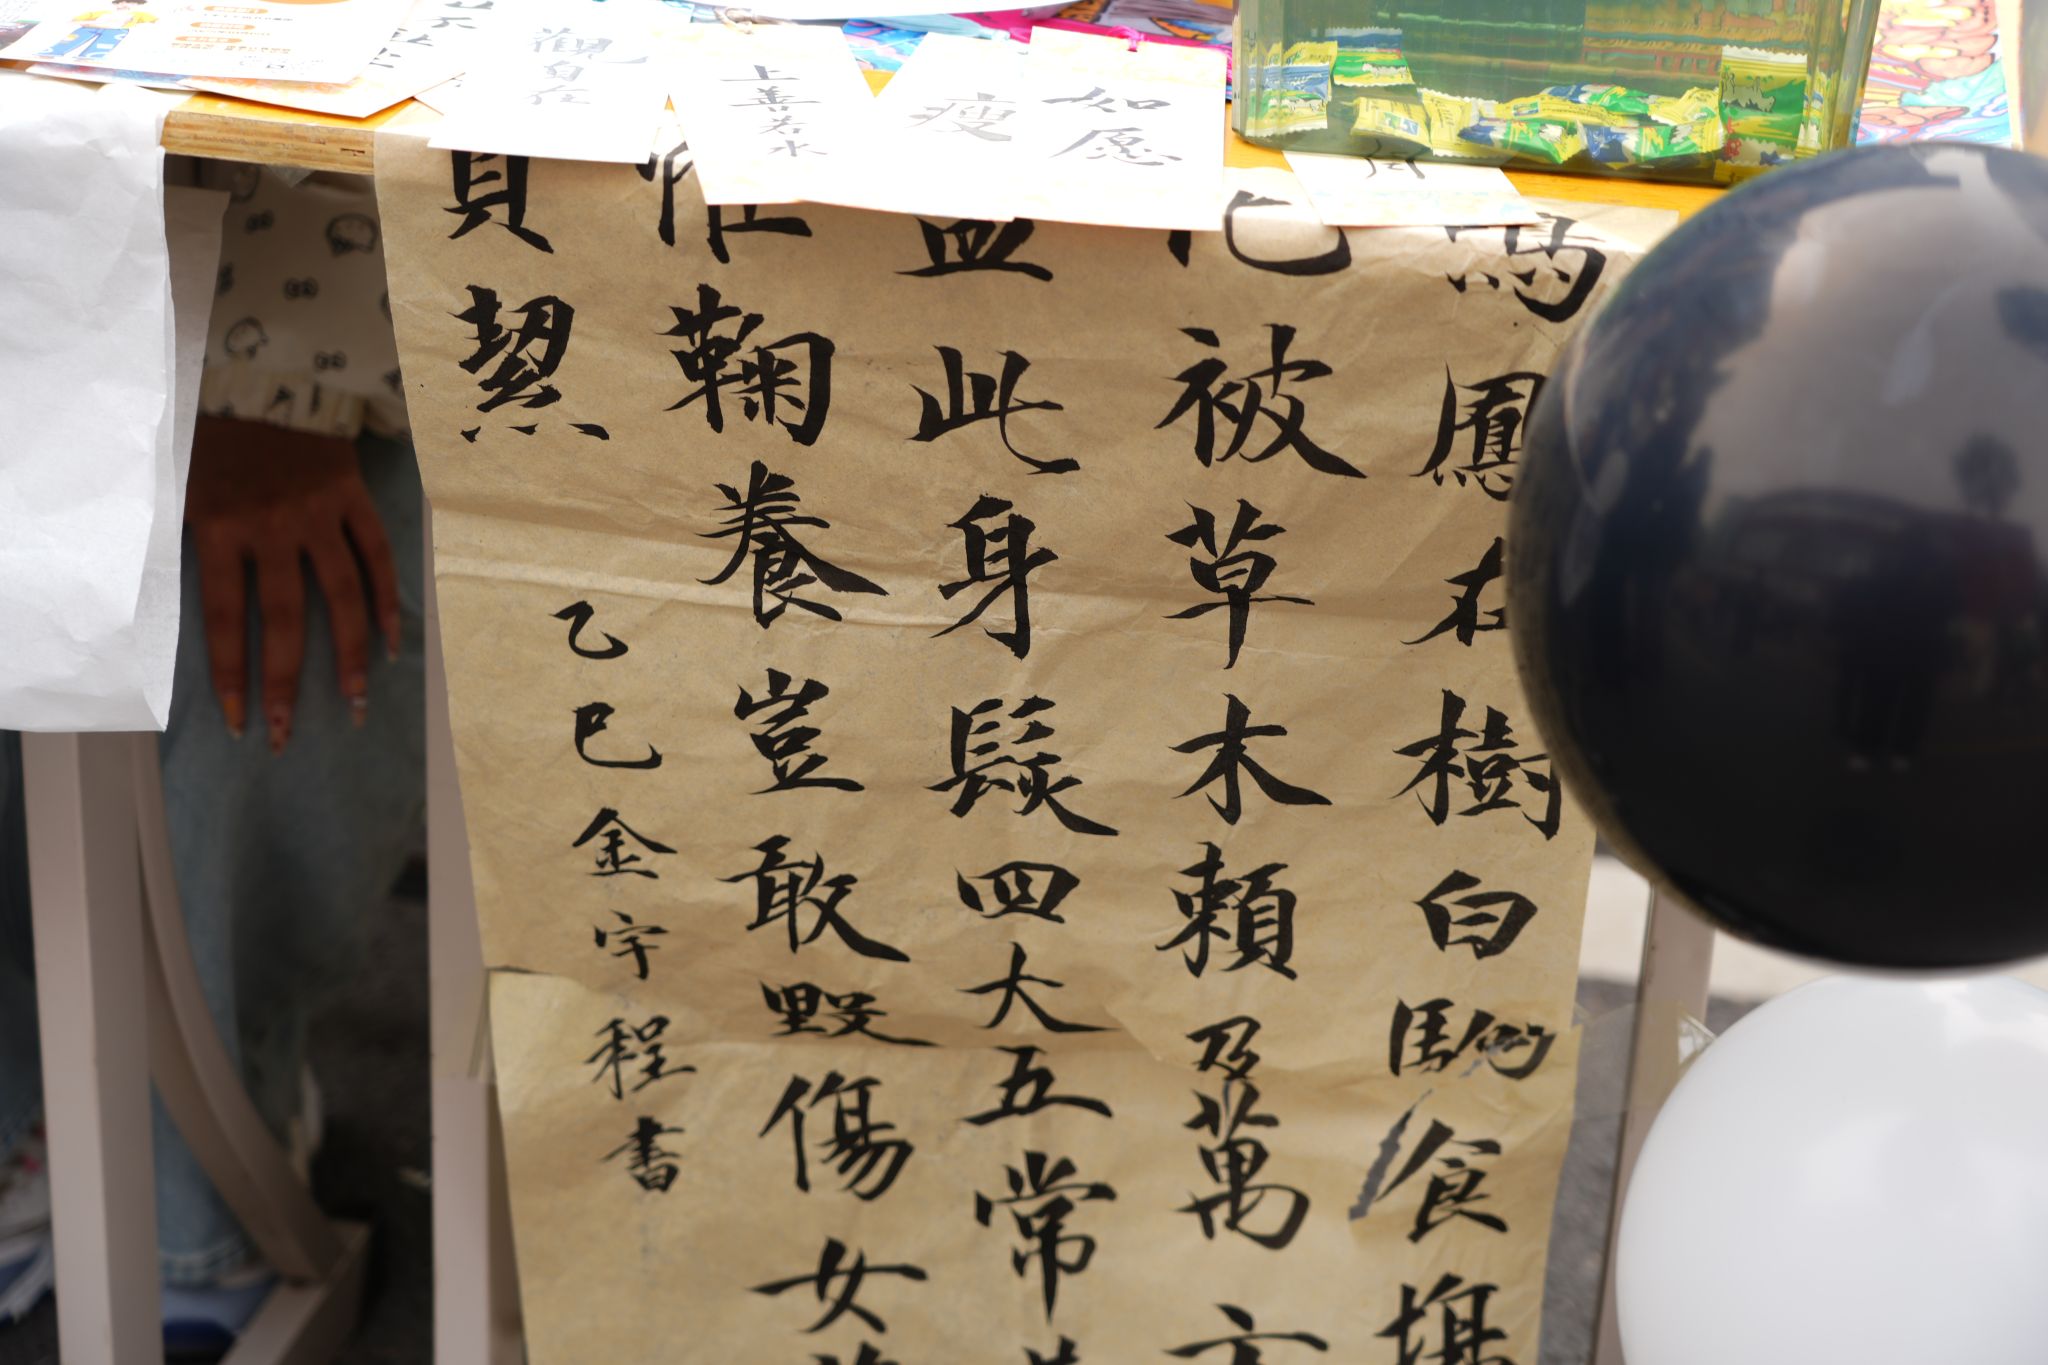 觀自在
上善若水
瘦
如愿
鳴鳳在樹白駒食場
化被草木賴及萬方
蓋此身髮四大五常
惟鞠養豈敢毀傷女
貞絜
乙巳金宇程書